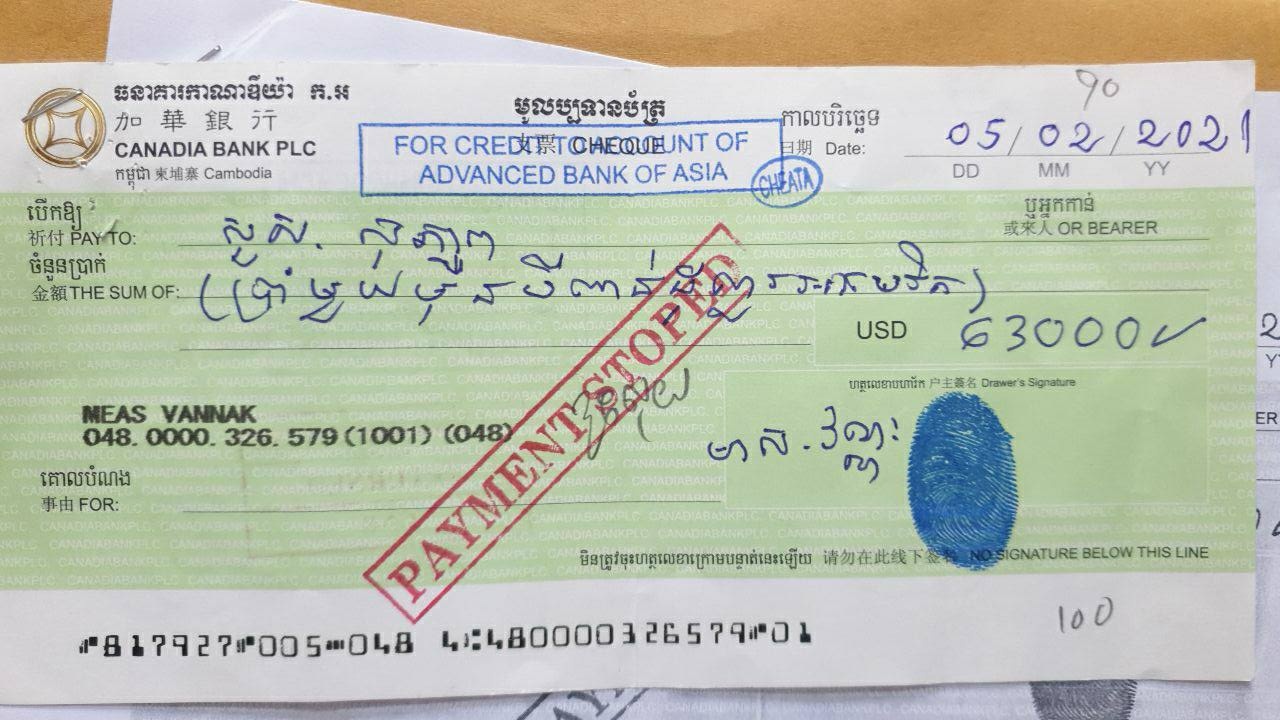 ធនាគារកាណាឌីយ៉ា ក.អ
加華銀行
CANADIA BANK PLC
កម្ពុជា 柬埔寨 Cambodia
មូលប្បទានប័ត្រ
支票 CHEQUE
FOR CREDIT TO ACCOUNT OF
ADVANCED BANK OF ASIA
CHEATA
90
កាលបរិច្ឆេទ
日期 Date:
05/02/2021
DD MM YY
បើកឱ្យ
祈付 PAY TO:
សួស. សុភ្ញូព
ឬអ្នកកាន់
或來人 OR BEARER
ចំនួនប្រាក់
金額 THE SUM OF:
(ប្រាំមួយម៉ឺនបីពាន់ដុល្លារអាមេរិក)
USD 63000
PAYMENT STOPED
MEAS VANNAK
048.0000.326.579(1001)(048)
ហត្ថលេខាបហារីក 户主簽名 Drawer's Signature
មាស. វណ្ណៈ
គោលបំណង
事由 FOR:
មិនត្រូវចុះហត្ថលេខាក្រោមបន្ទាត់នេះឡើយ 请勿在此线下签名 NO SIGNATURE BELOW THIS LINE
100
⑈817927⑈005⑉048 ⑆480000326579⑈01